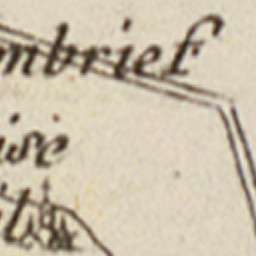 mbrief
ise